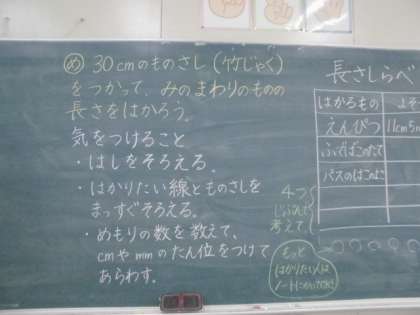 め 30cmのものさし(竹じゃく)
をつかって、みのまわりのものの
長さをはかろう。
気をつけること
・はしをそろえる。
・はかりたい線とものさしを
まっすぐそろえる。
・めもりの数を数えて、
cmやmmのたん位をつけて
あらわす。
長さしらべ
はかるもの
えんぴつ 11cm5m
ふでばこのたて
パスのはこのよこ
4つ
じぶんで
考えて
もっと
はかりたい人は
ノートにかいてOK!